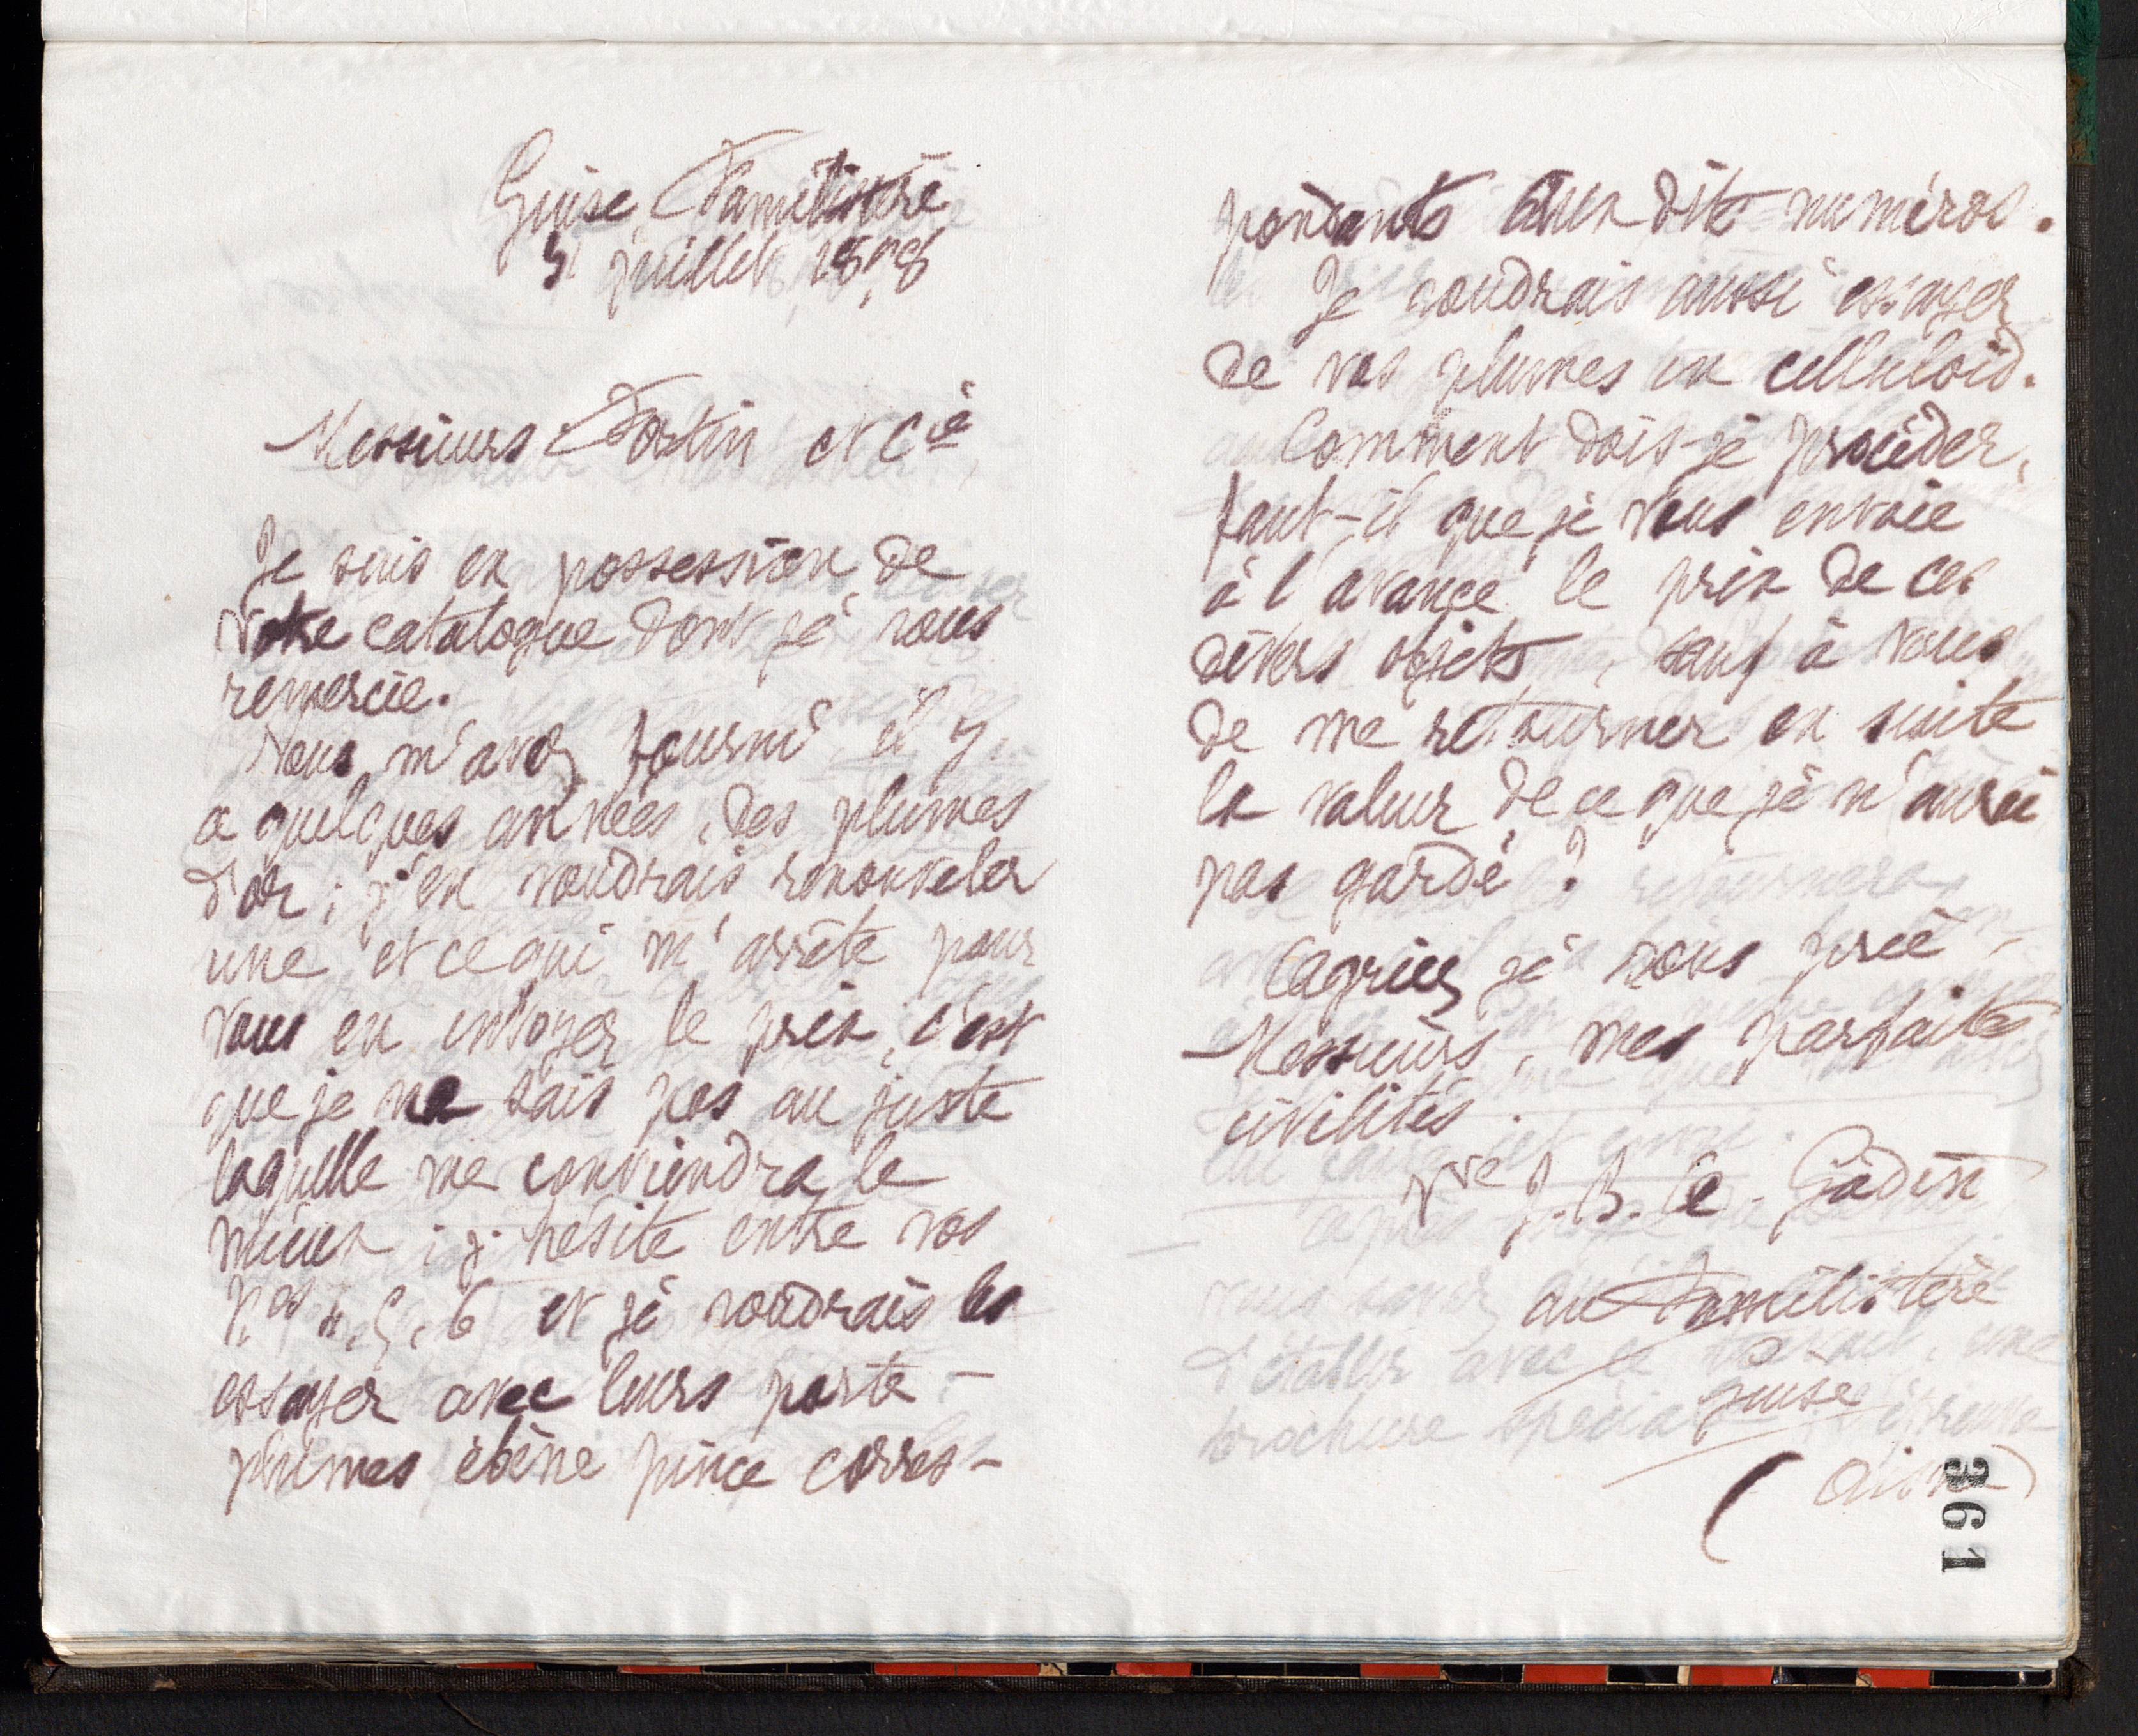 Guise, Familistère
juillet 1898
Messieurs Fortin et Cie
Je suis en possession de
votre catalogue dont je vous
remercie.
Vous m'avez fourni il y
a quelques années, des plumes
d'or ; j'en voudrais renouveler
une et ce qui m'arrête pour
vous en envoyer le prix, c'est
que je ne sais pas au juste
laquelle me conviendra le
mieux ; j'hésite entre vos
Nos 4, 5, 6 et je voudrais les
essayer avec leurs porte-
plumes ébène pince corres-
pondants aux dits numéros.
Je voudrais aussi essayer
de vos plumes en celluloïd.
Comment dois-je procéder,
faut-il que je vous envoie
à l'avance le prix de ces
divers objets, sauf à vous
de me retourner en suite
la valeur de ce que je n'aurai
pas gardé ?
Agréez je vous prie
Messieurs, mes parfaites
civilités.
Vve J. B. Ae Godin
au Familistère
Guise
(Aisne)
361